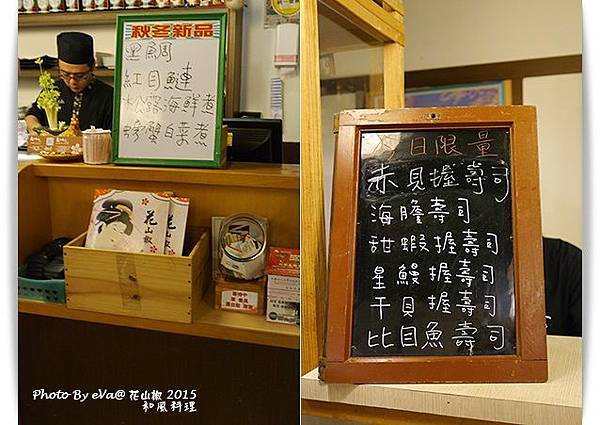 秋冬新品
星鯛
紅目鰱
松露海鮮煮
螃蟹白菜煮
花山椒
今日限量
赤貝握壽司
海膽壽司
甜蝦握壽司
星鰻握壽司
干貝握壽司
比目魚壽司
Photo By eVa@花山椒 2015
和風料理